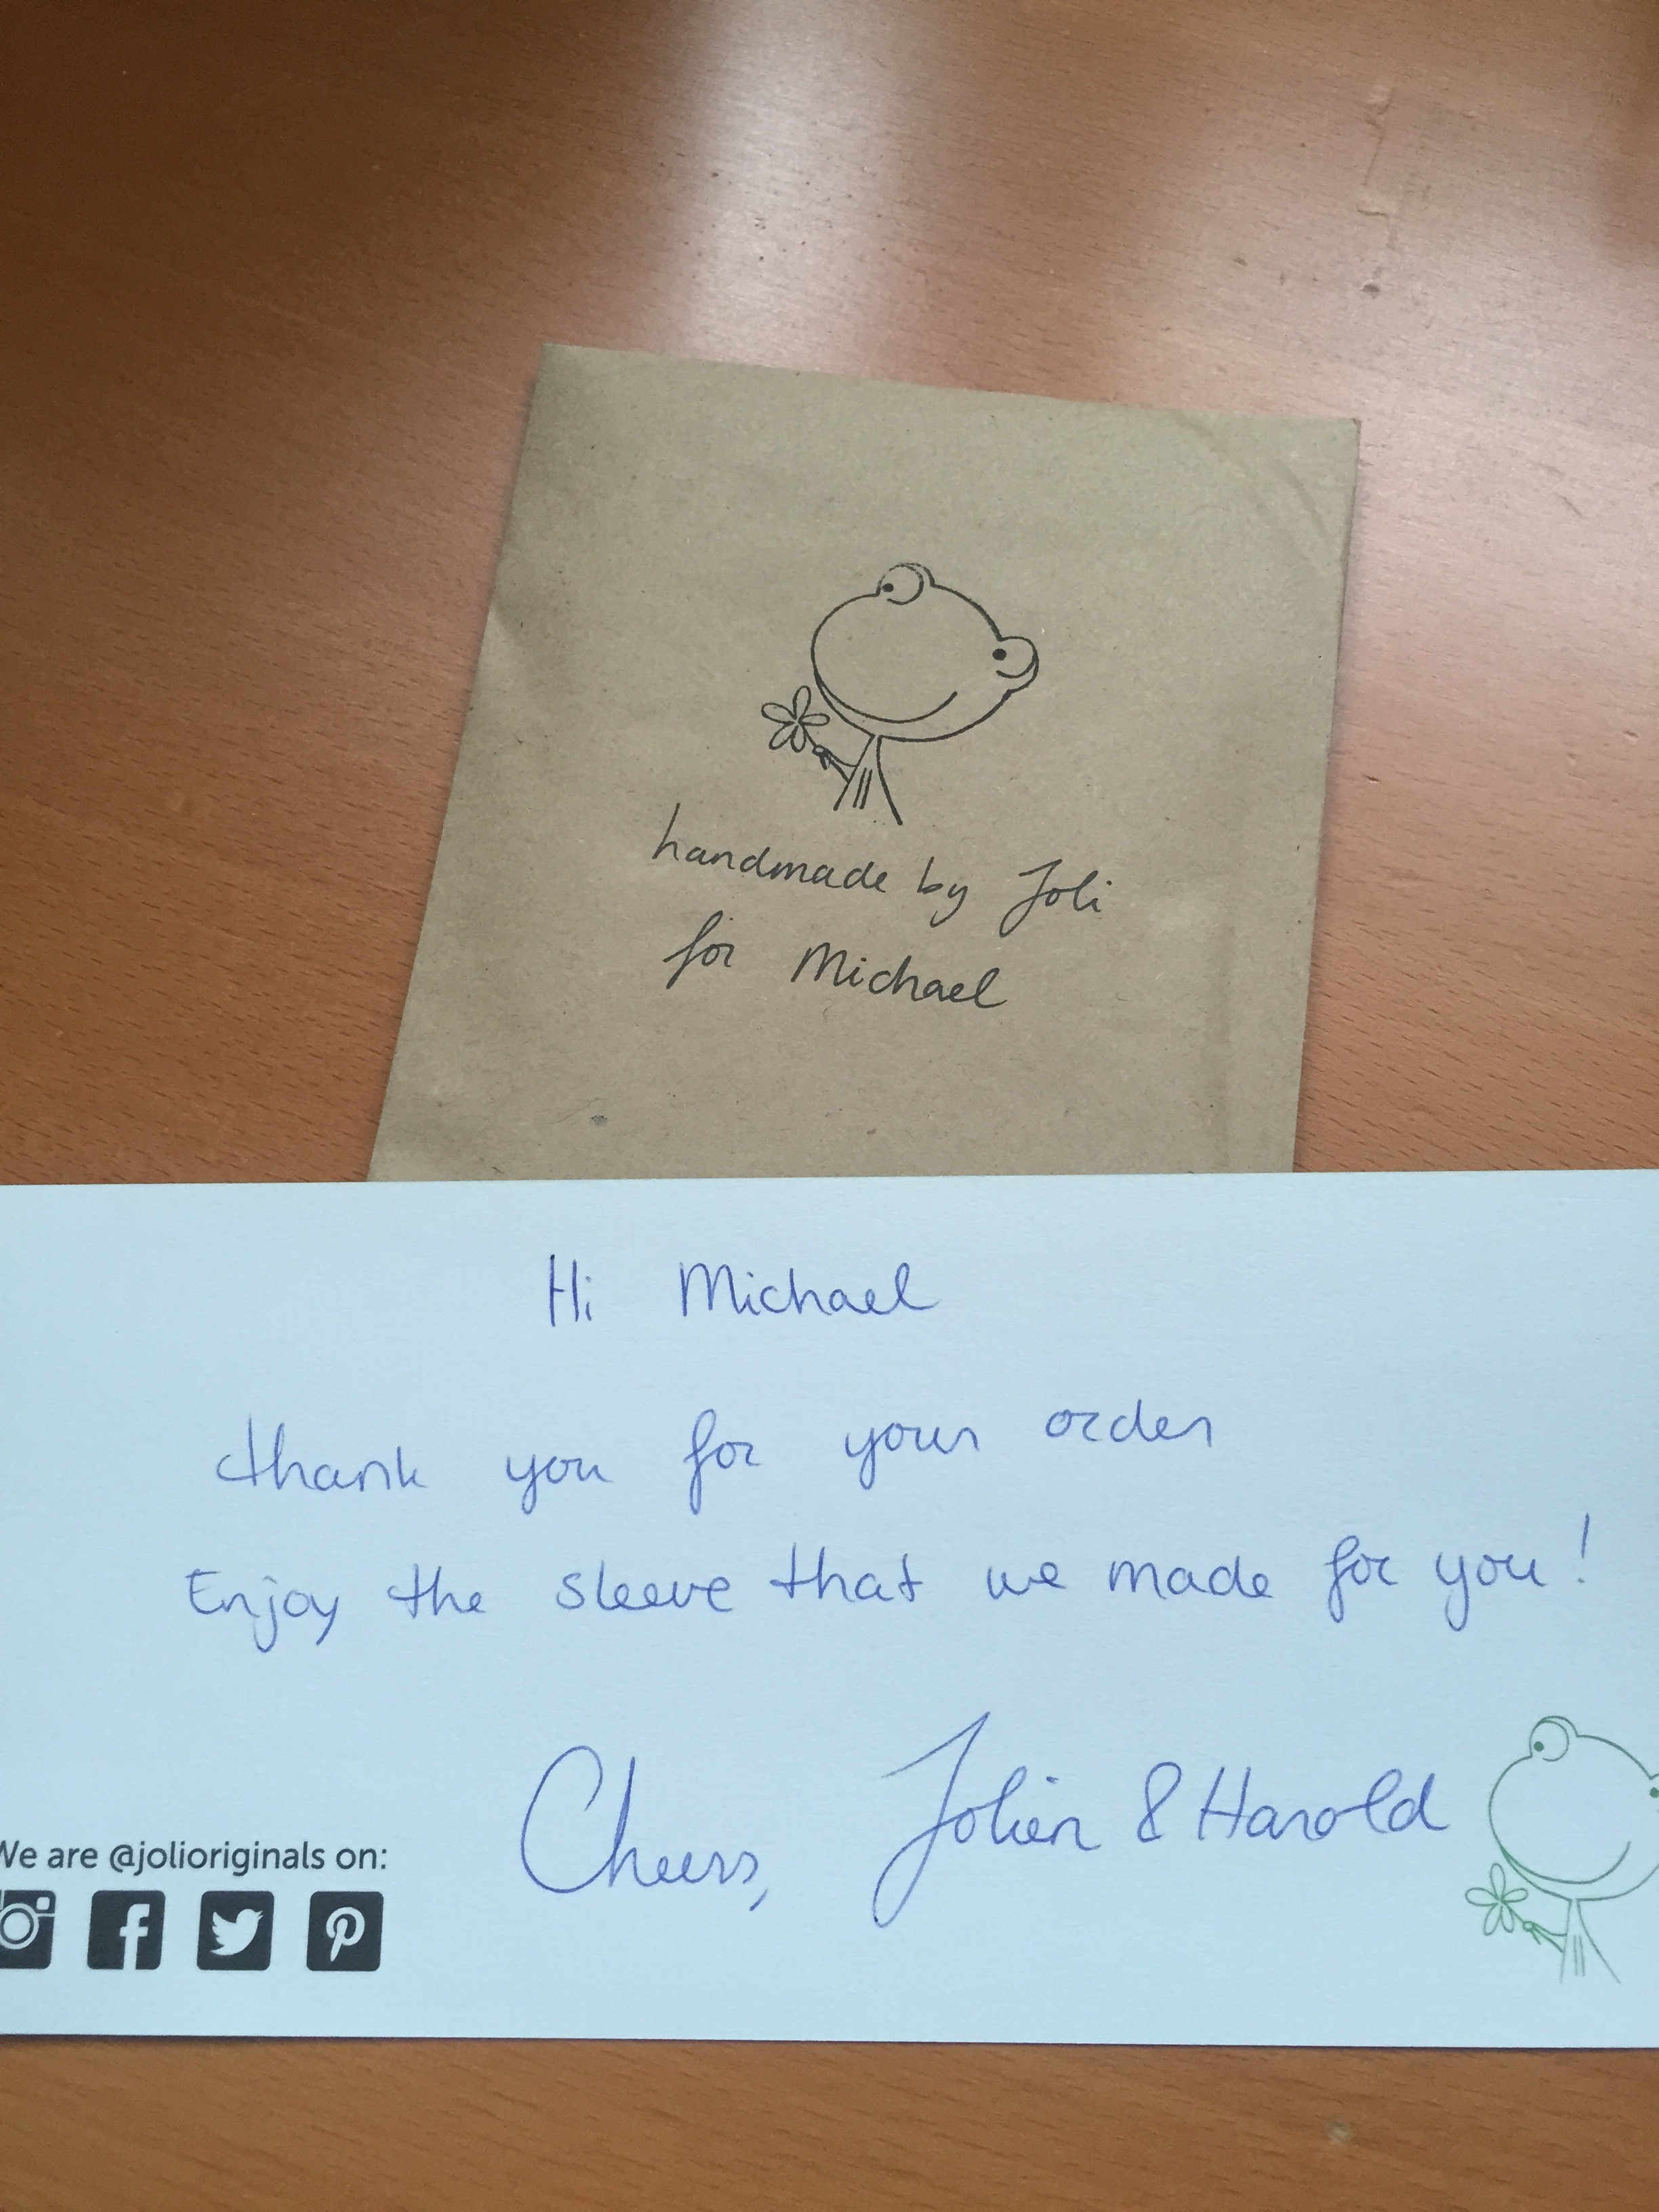 handmade by Joli
for Michael
Hi Michael
thank you for your order
Enjoy the sleeve that we made for you!
Cheers, Jolien & Harold
We are @jolioriginals on: